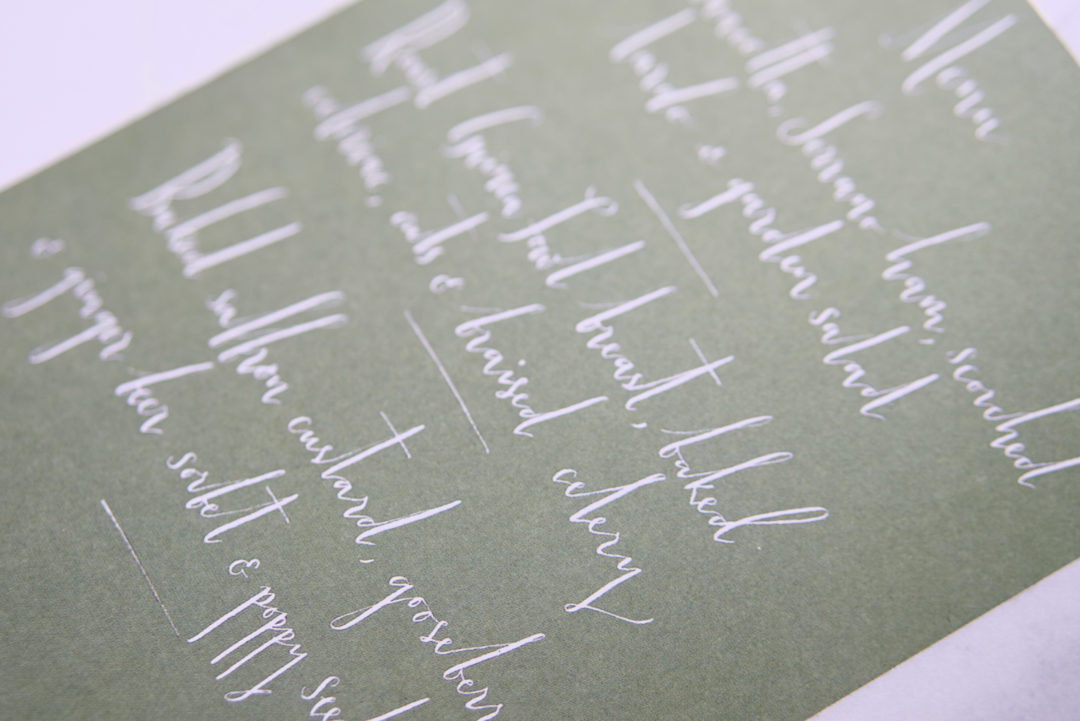 Menu
Serrano ham, scorched
& garden salad
Roast Guinea fowl breast, baked
oats & braised celery
Baked saffron custard, gooseberr
& ginger beer sorbet & poppy see